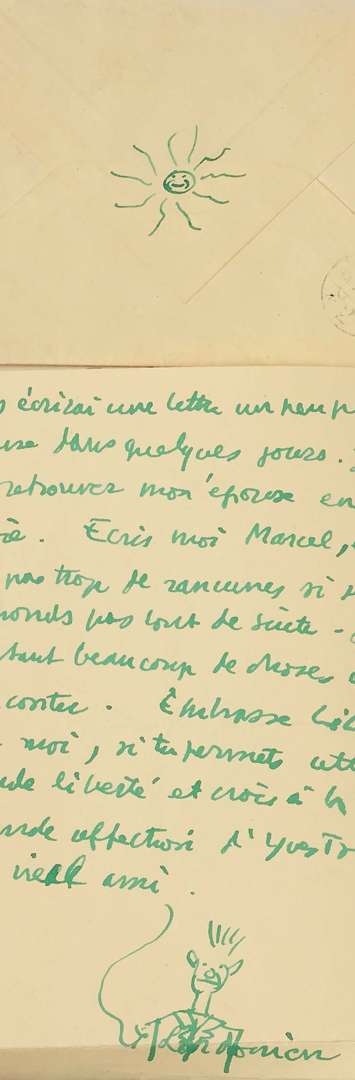 écrirai une lettre un peu p
dans quelques jours.
retrouver mon épouse en
Ecris moi Marcel,
pas trop de rancunes si
ponds pas tout de suite -
tant beaucoup de choses
conter. Embrasse
moi, si tu permets cette
nde liberté et crois à la
nde affection d'Yves
vieil ami.